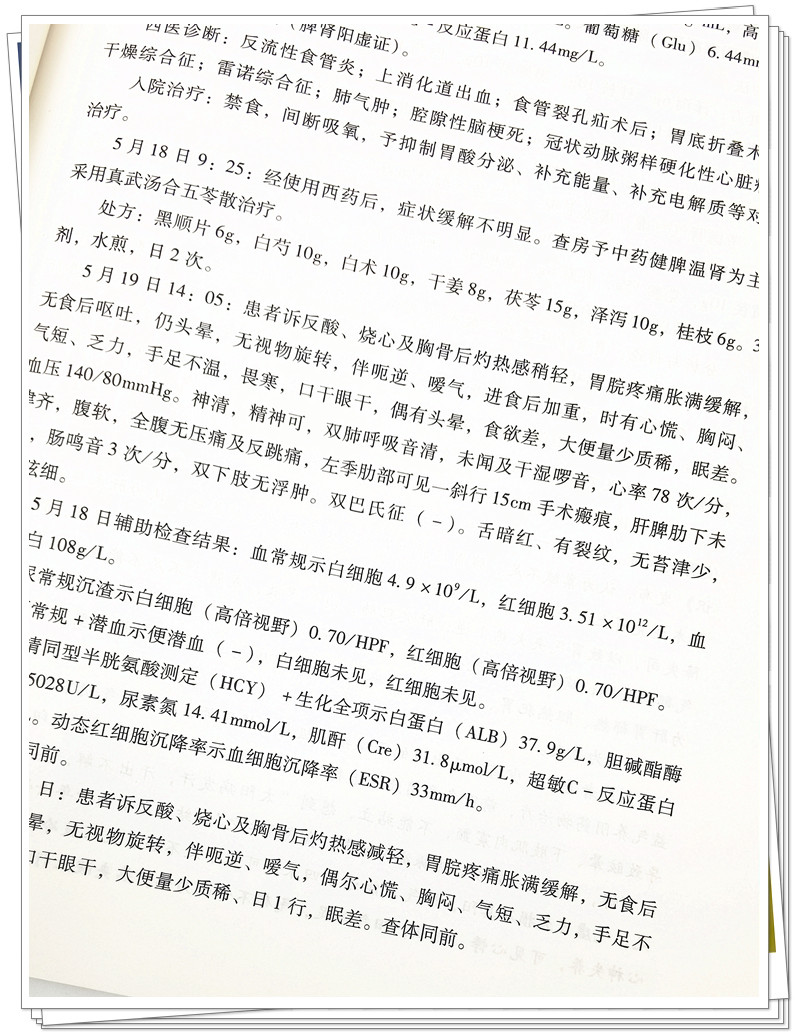 mL，高
反应蛋白 11.44mg/L。葡萄糖（Glu）6.44mm
（脾肾阳虚证）。
西医诊断：反流性食管炎；上消化道出血；食管裂孔疝术后；胃底折叠术
干燥综合征；雷诺综合征；肺气肿；腔隙性脑梗死；冠状动脉粥样硬化性心脏
入院治疗：禁食，间断吸氧，予抑制胃酸分泌、补充能量、补充电解质等对
治疗。
5 月 18 日 9：25：经使用西药后，症状缓解不明显。查房予中药健脾温肾为主
采用真武汤合五苓散治疗。
处方：黑顺片 6g，白芍 10g，白术 10g，干姜 8g，茯苓 15g，泽泻 10g，桂枝 6g。3
剂，水煎，日 2 次。
5 月 19 日 14：05：患者诉反酸、烧心及胸骨后灼热感稍轻，胃脘疼痛胀满缓解，
无食后呕吐，仍头晕，无视物旋转，伴呃逆、嗳气，进食后加重，时有心慌、胸闷、
气短、乏力，手足不温，畏寒，口干眼干，偶有头晕，食欲差，大便量少质稀，眠差。
血压 140/80mmHg。神清，精神可，双肺呼吸音清，未闻及干湿啰音，心率 78 次/分，
律齐，腹软，全腹无压痛及反跳痛，左季肋部可见一斜行 15cm 手术瘢痕，肝脾肋下未
，肠鸣音 3 次/分，双下肢无浮肿。双巴氏征（-）。舌暗红、有裂纹，无苔津少，
弦细。
5 月 18 日辅助检查结果：血常规示白细胞 4.9×10⁹/L，红细胞 3.51×10¹²/L，血
白 108g/L。
尿常规沉渣示白细胞（高倍视野）0.70/HPF，红细胞（高倍视野）0.70/HPF。
常规+潜血示便潜血（-），白细胞未见，红细胞未见。
清同型半胱氨酸测定（HCY）+生化全项示白蛋白（ALB）37.9g/L，胆碱酯酶
5028U/L，尿素氮 14.41mmol/L，肌酐（Cre）31.8μmol/L，超敏C-反应蛋白
。动态红细胞沉降率示血细胞沉降率（ESR）33mm/h。
同前。
日：患者诉反酸、烧心及胸骨后灼热感减轻，胃脘疼痛胀满缓解，无食后
晕，无视物旋转，伴呃逆、嗳气，偶尔心慌、胸闷、气短、乏力，手足不
口干眼干，大便量少质稀、日 1 行，眠差。查体同前。